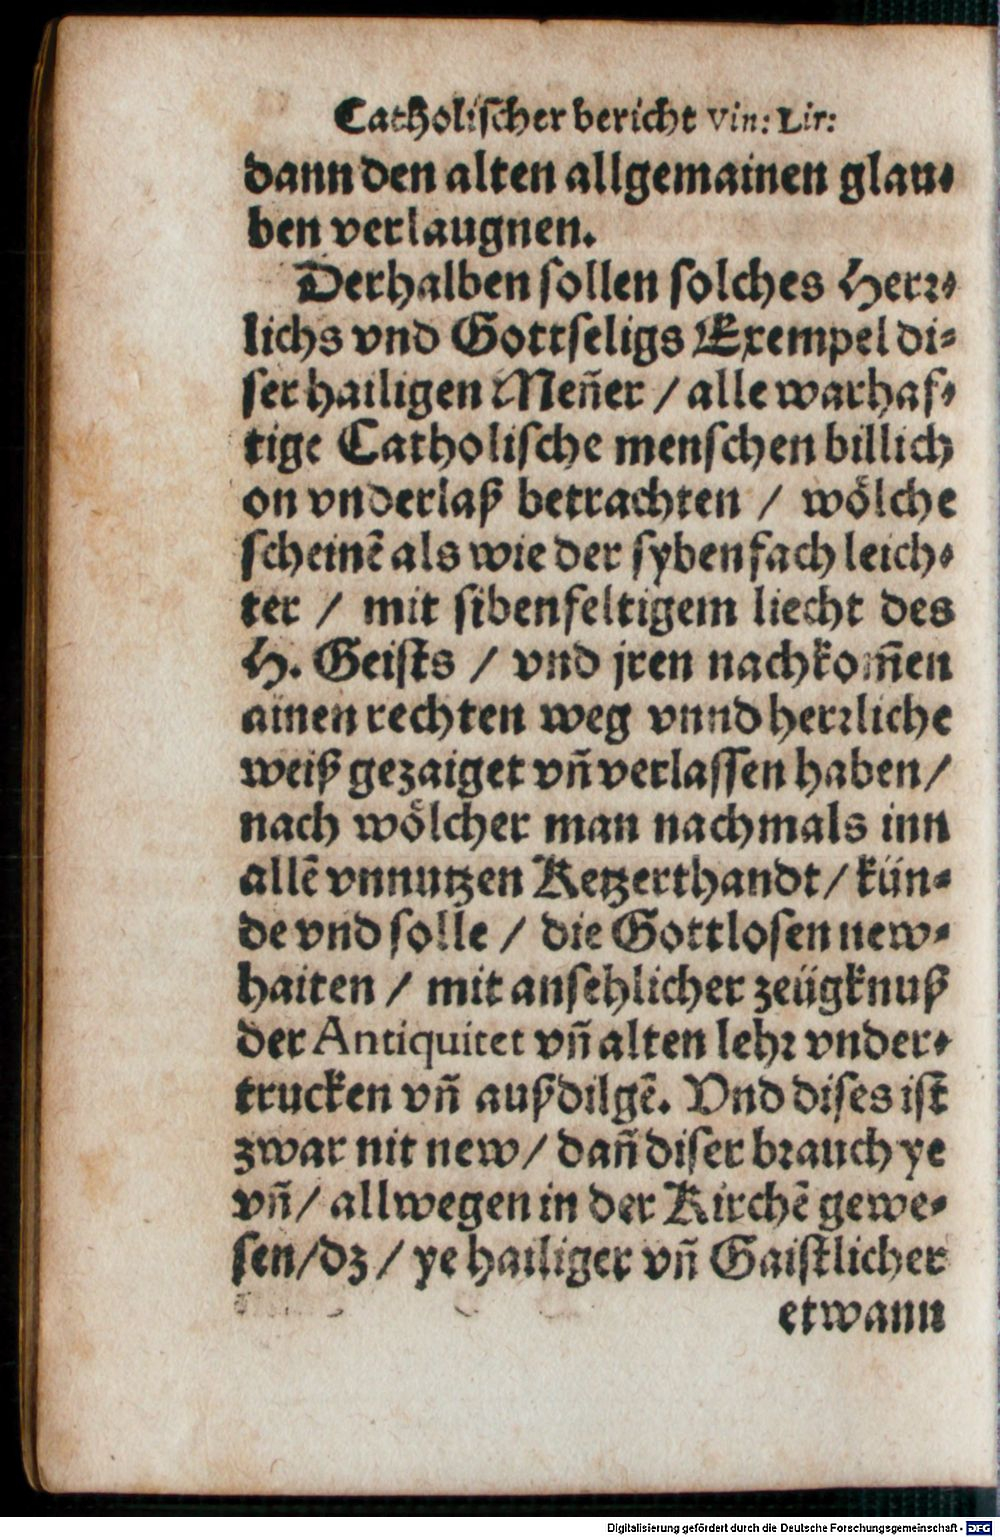 Catholischer bericht Vin: Lir:
dann den alten allgemainen glau⸗
ben verlaugnen.
Derhalben sollen solches Herꝛ⸗
lichs vnd Gottseligs Exempel di⸗
ser hailigen Men̄er / alle warhaf⸗
tige Catholische menschen billich
on vnderlaß betrachten / woͤlche
scheinē als wie der sybenfach leich⸗
ter / mit sibenfeltigem liecht des
H. Geists / vnd jren nachkom̄en
ainen rechten weg vnnd herꝛliche
weiß gezaiget vn̄ verlassen haben /
nach woͤlcher man nachmals inn
allē vnnutzen Ketzerthandt / kün⸗
de vnd solle / die Gottlosen new⸗
haiten / mit ansehlicher zeügknuß
der Antiquitet vn̄ alten lehꝛ vnder⸗
trucken vn̄ außdilgē. Vnd dises ist
zwar nit new / dan̄ diser bꝛauch ye
vn̄ / allwegen in der Kirchē gewe⸗
sen / dz / ye hailiger vn̄ Gaistlicher
etwann
Digitalisierung gefördert durch die Deutsche Forschungsgemeinschaft - DFG